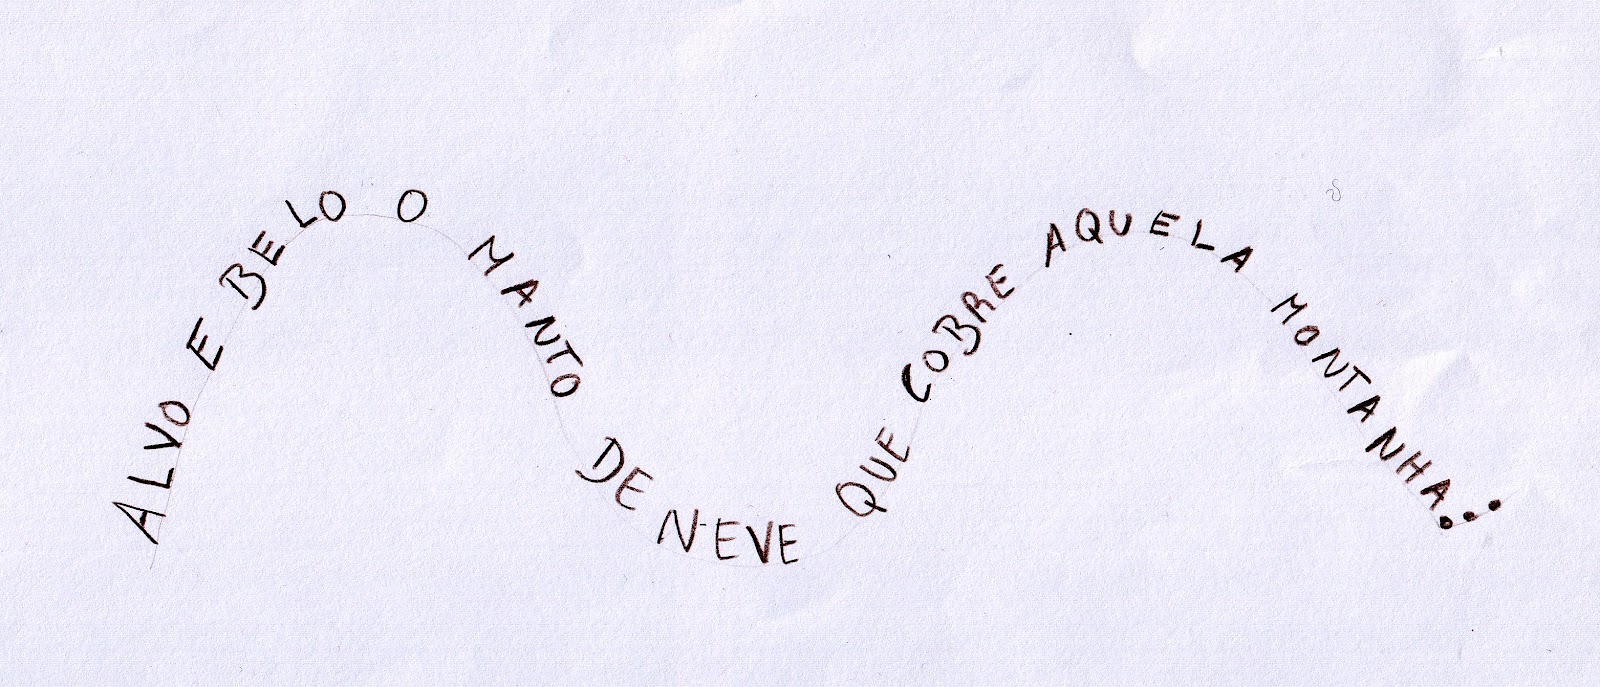 ALVO E BELO O MANTO DE NEVE QUE COBRE AQUELA MONTANHA...